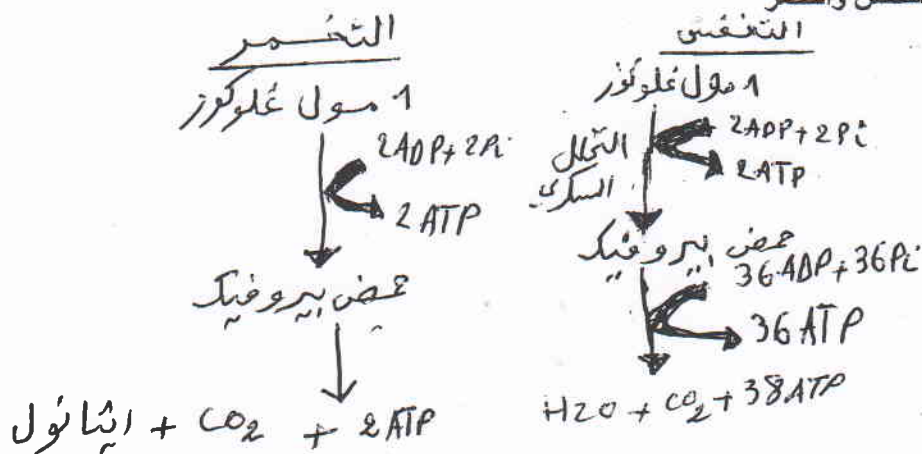 التنفس
1 مول غلوكوز
2ADP+2Pi
التحلل
السكري
2ATP
حمض البيروفيك
36ADP+36Pi
36ATP
H2O + CO2 + 38ATP
التخمر
1 مول غلوكوز
2ADP+2Pi
2ATP
حمض بيروفيك
ايثانول + CO2 + 2ATP